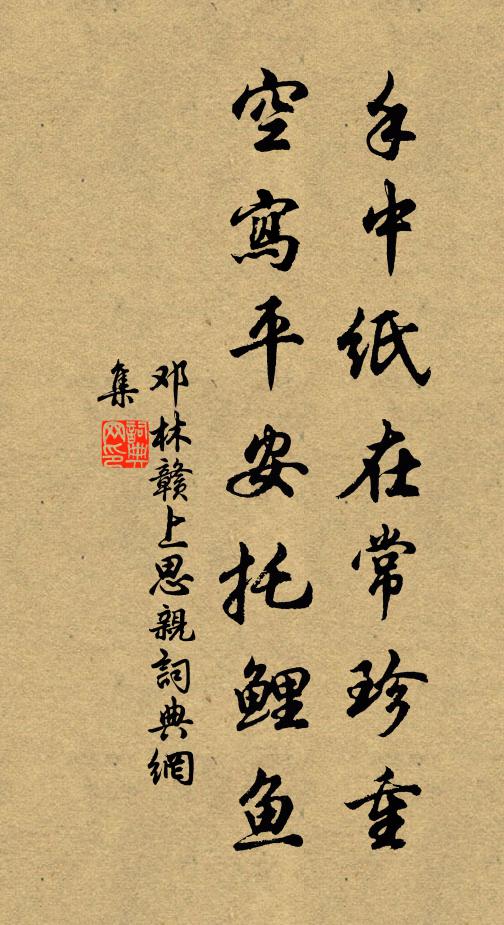 手中纸在常珍重
空寫平安托鲤鱼
邓林赣上思親詞典網
集
詞典
网印